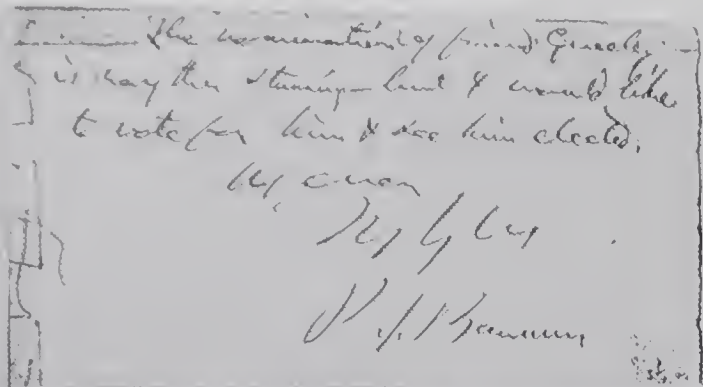 The nomination of friend Greeley
is rayther stunning but I would like
to vote for him & see him elected.
As ever
Truly Yrs
P. T. Barnum